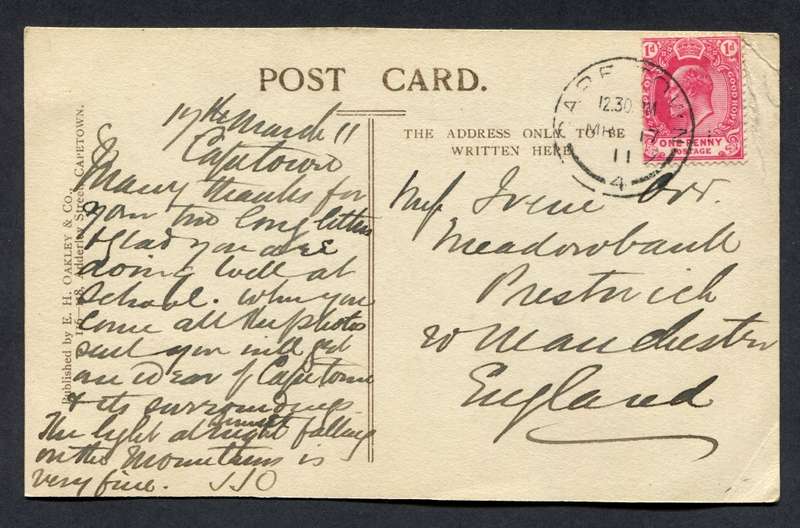 POST CARD.
THE ADDRESS ONLY TO BE
WRITTEN HERE
Published by E. H. OAKLEY & Co.,
Adderley Street, CAPETOWN.
17th March 11
Capetown
Many thanks for
your two long letters
& glad you are
doing well at
School. When you
come all the photos
sent you will get
an idear of Capetown
& its surroundings
The light at night falling
on the Mountains is
very fine. JJO
Miss Irene Orr.
Meadowbank
Prestwich
Manchester
England
CAPE TOWN
12.30 PM
17
11
4
1d
1d
GOOD HOPE
ONE PENNY
POSTAGE